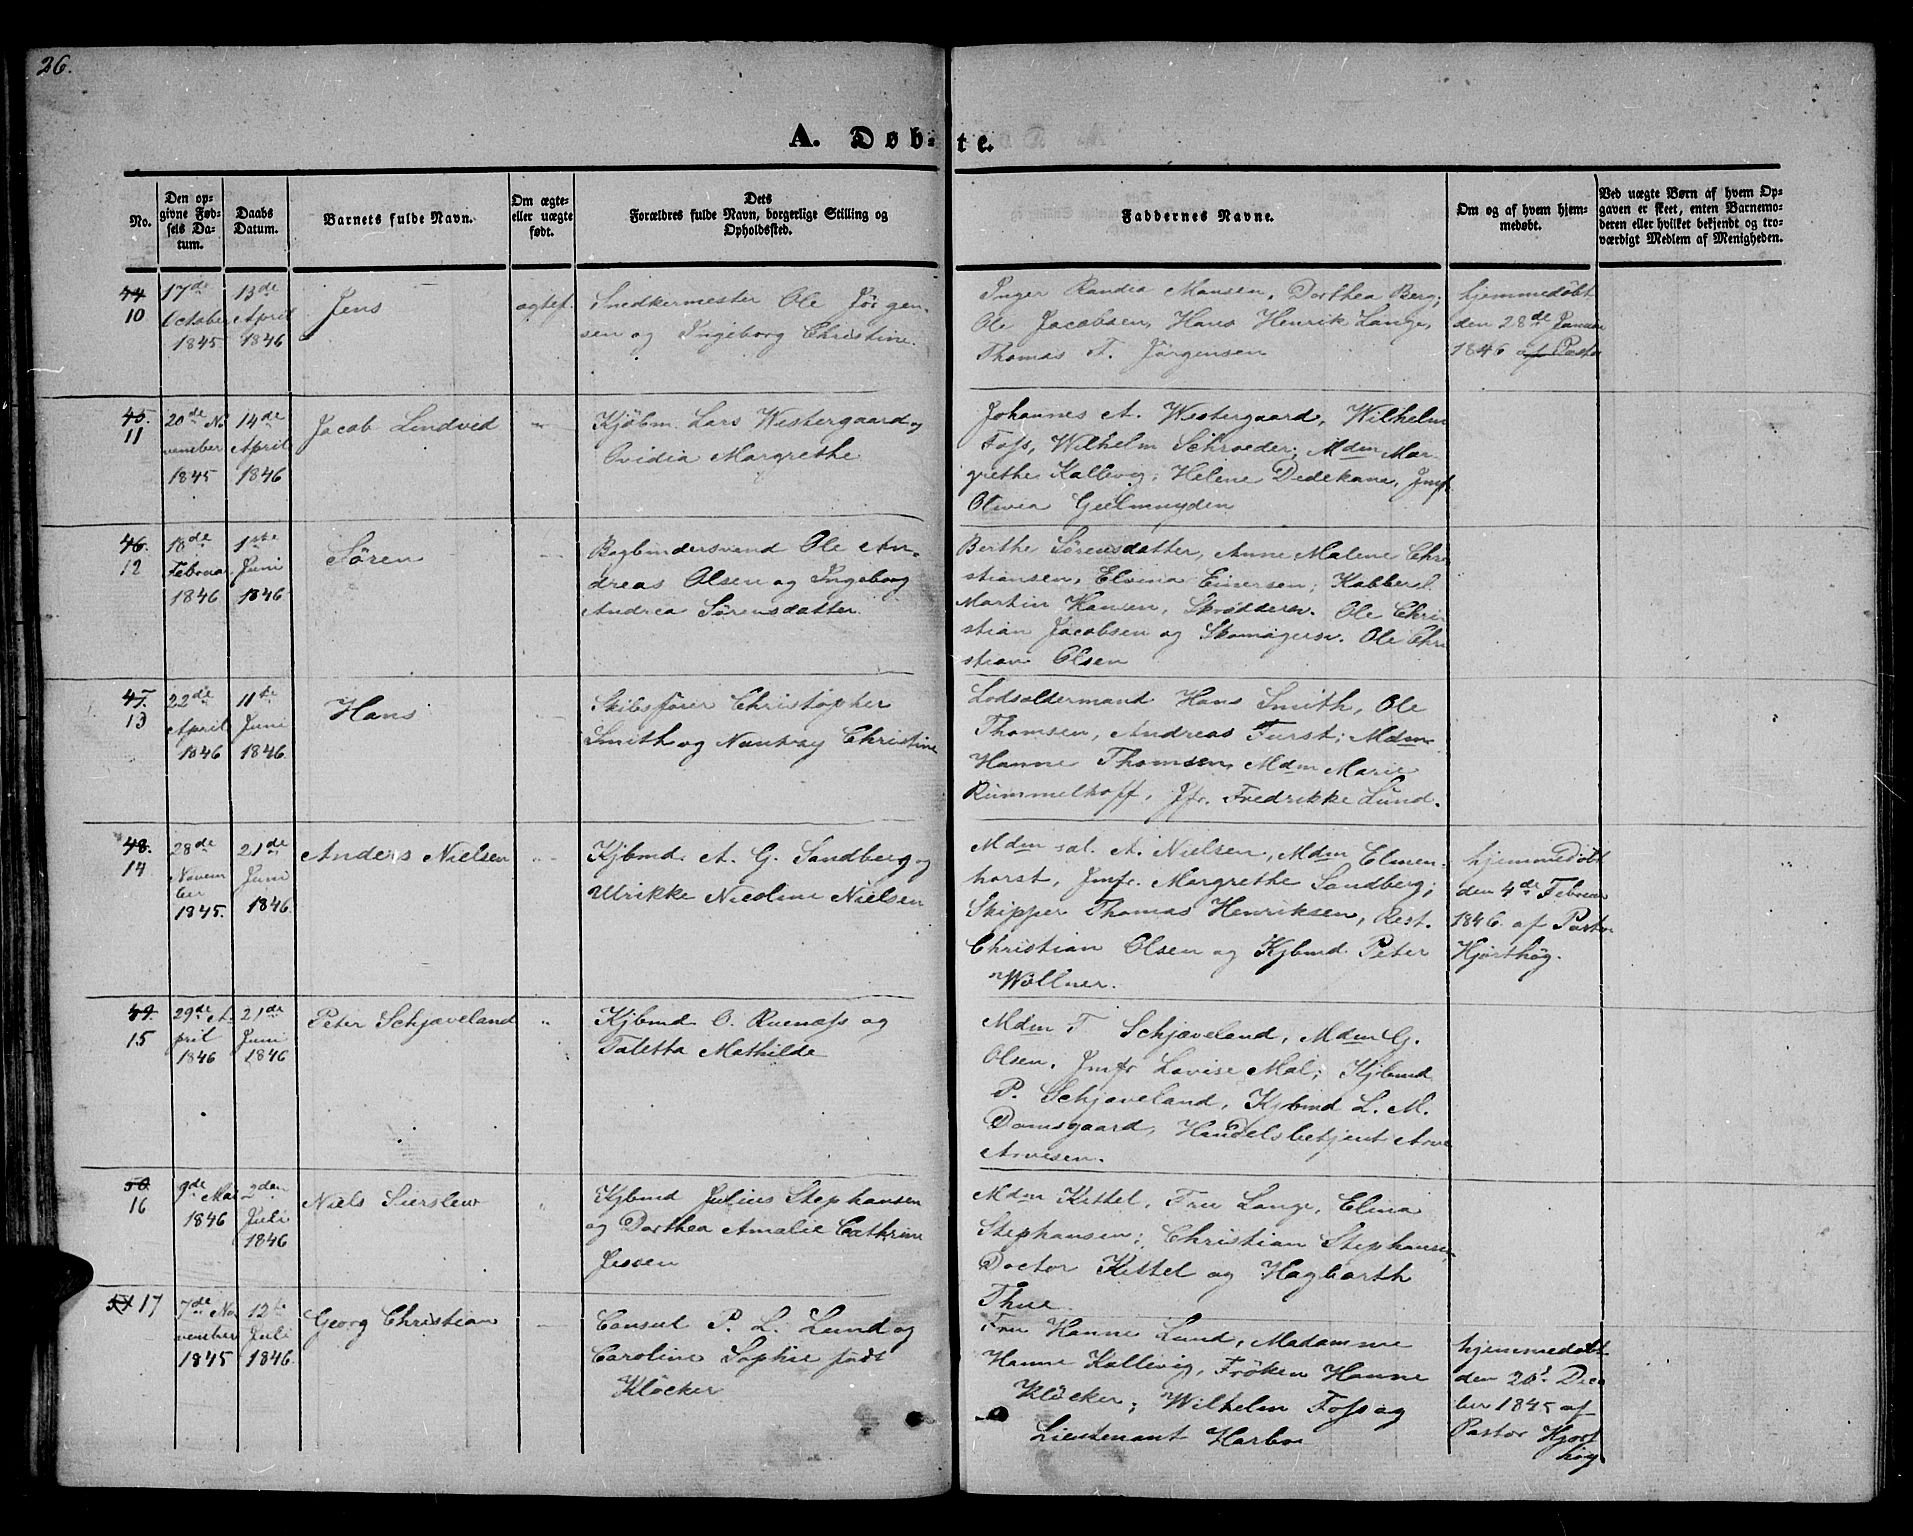 26.
A. Døb-te.
No.
Den op-
givne Fød-
sels Da-
tum.
Daabs
Datum.
Barnets fulde Navn.
Om ægte-
eller uægte
født.
Dets
Forældres fulde Navn, borgerlige Stilling og
Opholdssted.
Faddernes Navne.
Om og af hvem hjem-
medøbt.
Ved uægte Børn af hvem Op-
gaven er skeet, enten Barnemo-
deren eller hvilket bekjendt og tro-
værdigt Medlem af Menigheden.
44
10
17de
October
1845
13de
April
1846
Jens
ægtef.
Snedkermester Ole Jörgen-
sen og Ingeborg Christine.
Inger Randia Hansen, Dorthea Berg;
Ole Jacobsen, Hans Henrik Lange,
Thomas T. Jörgensen
hjemmedöbt
den 28de Januar
1846 af Pastor
45.
11
20de No
vember
1845
14de
April
1846
Jacob Lindvid
Kjöbm. Lars Westergaard og
Ovidia Margrethe
Johannes A. Westergaard, Wilhelm
Foss, Wilhelm Schroeder; Mdm Mar-
grethe Kallevig; Helene Dedekam, Jmf.
Olivia Gjelmuyden
46.
12
18de
Februar
1846
1ste
Juni
1846
Sören
Bogbindersvend Ole An-
dreas Olsen og Ingeborg
Andrea Sörensdatter.
Berthe Sörensdatter, Anne Malene Chri
stiansen, Elvina Einersen; Kobbersl.
Martin Hansen, Skrædders. Ole Chri-
stian Jacobsen og Skomagersv. Ole Chri
stian Olsen
47.
13
22de
April
1846
11te
Juni
1846
Hans
Skibsförer Christopher
Smith og Christine
Lodsoldermand Hans Smith, Ole
Thomsen, Andreas Furst; Mdm
Hanne Thomsen, Mdm Marie
Rummelhoff, Jfr. Fredrikke Lund.
48.
14
28de
Novem
ber
1845.
21de
Juni
1846
Anders Nielsen
Kjbmd. A. G. Sandberg og
Ulrikke Nicoline Nielsen
Mdm sal. A. Nielsen, Mdm Elmen-
horst, Jmfr. Margrethe Sandberg;
Skipper Thomas Henriksen, Rest.
Christian Olsen og Kjbmd Peter
Wöllner.
hjemmedöbt
den 4de Februar
1846 af Pastor
Hjorthög.
49.
15
29de A-
pril
1846
21de
Juni
1846
Peter Schjaveland
Kjbmd O. Ruenæss og
Taletta Mathilde
Mdm T. Schjæveland, Mdm G.
Olsen, Jmfr Lovise Mal; Kjbmd
P. Schjaveland, Kjbmd L. M.
Damsgaard, Handelsbetjent Arve
Arvesen.
50.
16
9de Mai
1846
2den
Juli
1846
Niels Sierslew
Kjbmd Julius Stephansen
og Dorthea Amalie Cathrine
Jessen
Mdm Kittel, Fru Lange, Elina
Stephansen; Christian Stephansen,
Doctor Kittel og Hagbarth
Thue.
51 17
7de No
vember
1845
12te
Juli
1846
Georg Christian
Consul P. L. Lund og
Caroline Sophie födt
Klöcker
Fru Hanne Lund, Madamme
Hanne Kallevig, Fröken Hanne
Klöcker; Wilhelm Foss og
Lieutenant Harboe
hjemmedöbt
den Decem
ber 1845 af
Pastor Hjort
hög